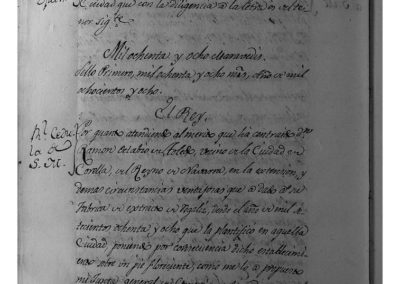 Ciudad que con la diligencia a la letra es del te
nor sig.te
Mil ochenta y ocho maravedis.
Sello Primero, mil ochenta y ocho mrs, año de mil
ochocientos y ocho.
El Rey.
Rl Cedu
la de
S. M.
Por quanto atendiendo al merito que ha contraido Dn
Ramon de, vecino de la Ciudad de
Corella, en el Reyno de Navarra, en la extension, y
demas circunstancias ventajosas que a dado al de
Fabrica de extracto de Regaliz, desde el año de mil
ochenta y ocho que la planteó en aquella
Ciudad, poniendo por consecuencia dicho establecimi
ento sobre un pie floreciente, como me lo a propuesto
mi Junta general de